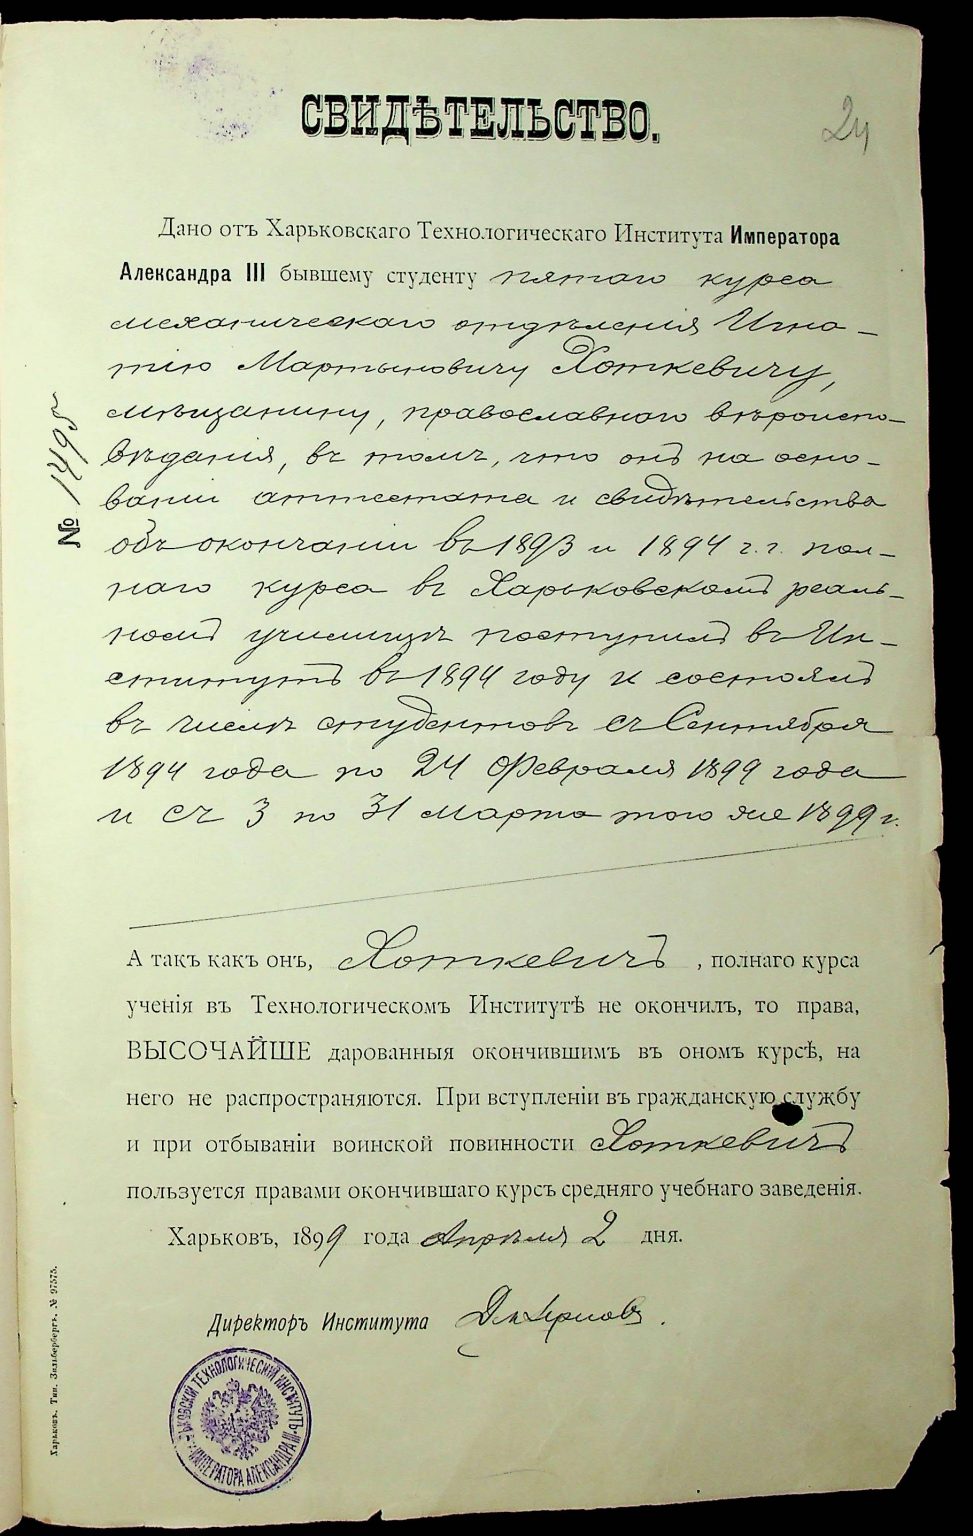 СВИДѢТЕЛЬСТВО.
24
Дано отъ Харьковскаго Технологическаго Института Императора
Александра III бывшему студенту пятаго курса
механическаго отдѣленія Игна-
тію Мартыновичу Хоткевичу,
мѣщанину, православнаго вѣроиспо-
вѣданія, въ томъ, что онъ на осно-
ваніи аттестата и свидѣтельства
объ окончаніи въ 1893 и 1894 г.г. пол-
наго курса въ Харьковскомъ реаль-
номъ училищѣ поступилъ въ Ин-
ститутъ въ 1894 году и состоялъ
въ числѣ студентовъ съ Сентября
1894 года по 24 Февраля 1899 года
и съ 3 по 31 Марта того же 1899 г.
№ 1495
А такъ какъ онъ, Хоткевичъ, полнаго курса
ученія въ Технологическомъ Институтѣ не окончилъ, то права,
ВЫСОЧАЙШЕ дарованныя окончившимъ въ ономъ курсѣ, на
него не распространяются. При вступленіи въ гражданскую службу
и при отбываніи воинской повинности Хоткевичъ
пользуется правами окончившаго курсъ средняго учебнаго заведенія.
Харьковъ, 1899 года Апрѣля 2 дня.
Директоръ Института
ХАРЬКОВСКІЙ ТЕХНОЛОГИЧЕСКІЙ ИНСТИТУТЪ ИМПЕРАТОРА АЛЕКСАНДРА III
Харьковъ. Тип. Зильбербергъ. № 97575.